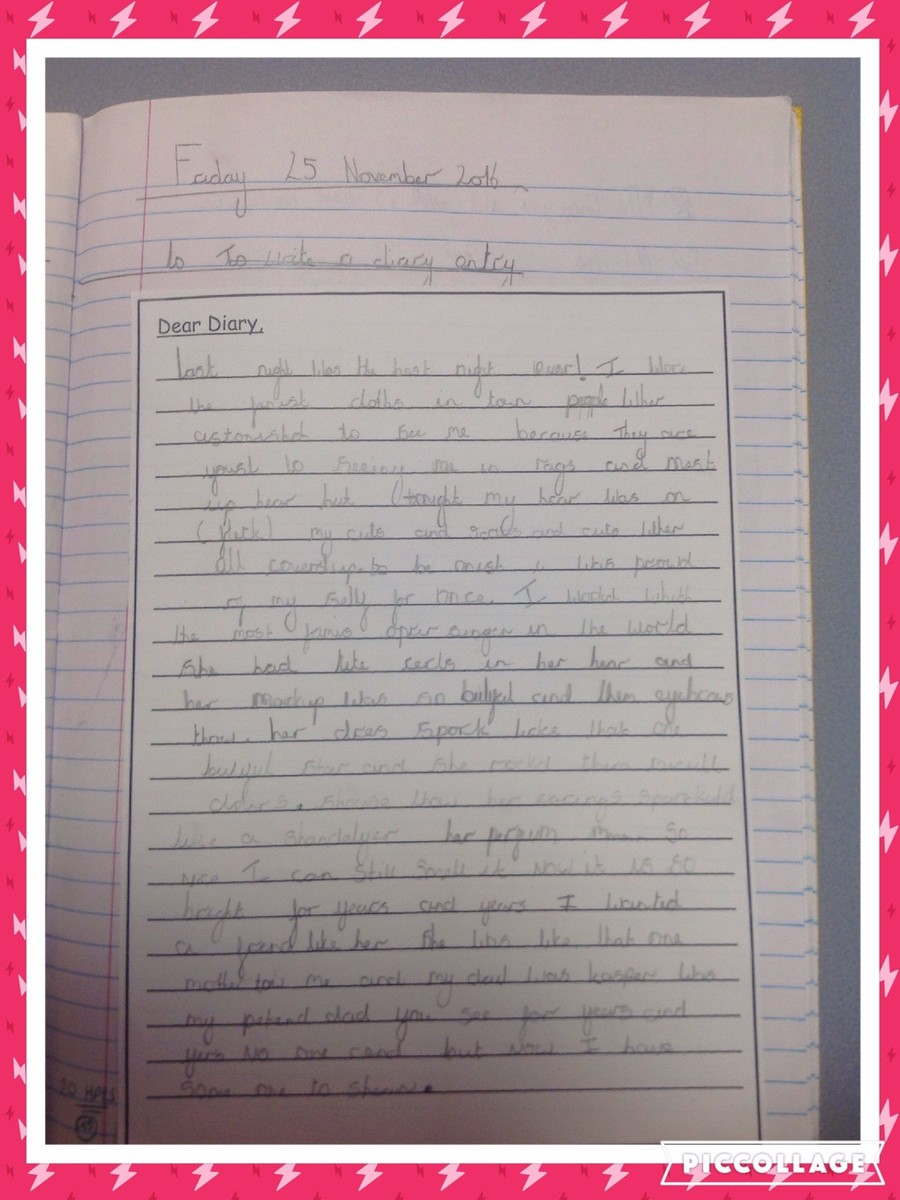 Friday 25 November 2016
Lo To write a diary entry
Dear Diary,
Last night was the best night ever! I wore
the cloths in town people wher
astonishd to see me because They are
youst to seeing me in rags and mest
up hear but I tought my hear was on
my cuts and scabs and cuts wher
all coverd up to be onest i was proud
of my self for once. I workd whith
the most famis oper singer in the world
She had like cerls in her hear and
her mackup was so butyful and them eyebrows
thow. her dres spark licke that one
butyful star and she rockd them
her earings
like a shandelyer her perfum so
nice I can still smell it Now it is so
bright for years and years I wanted
a frend like her She was like that one
mother to me and my dad was kasper was
my petend dad you see for years and
yers No one cerd but Now I have
some one to
20 HPts
PICCOLLAGE